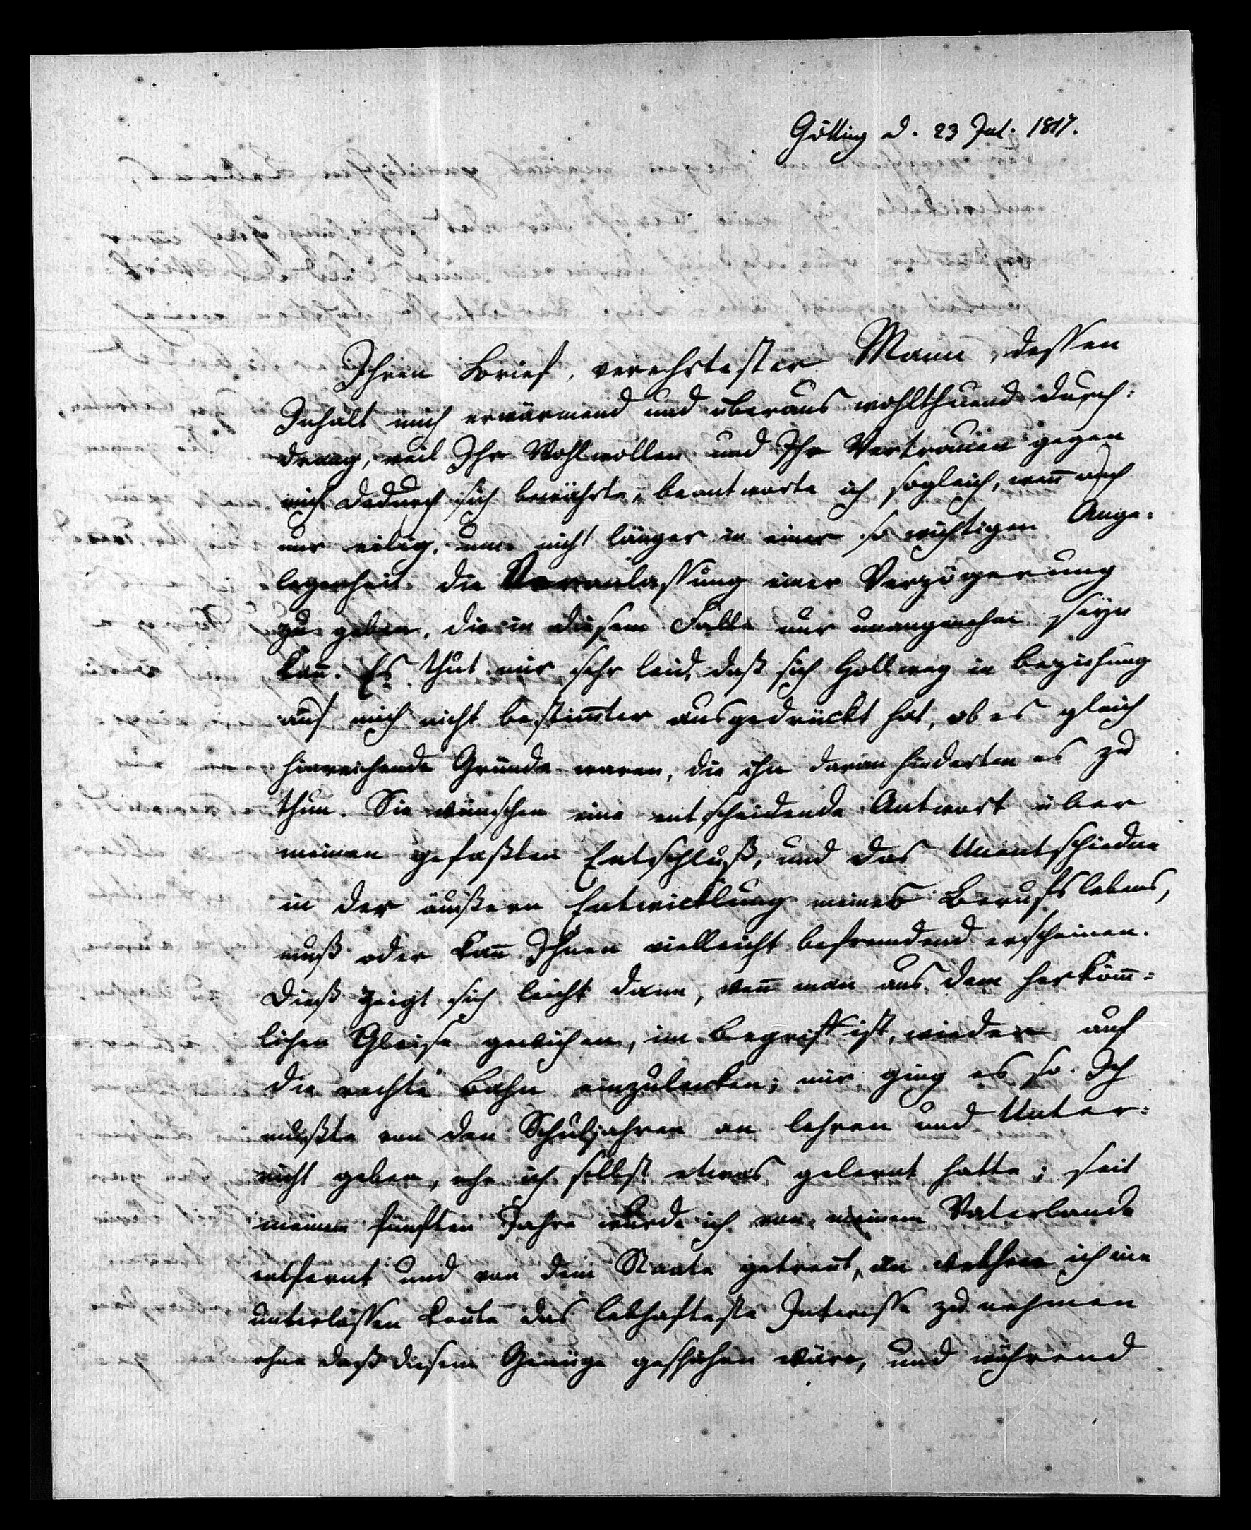 Götting d. 23 Jul. 1817.
Ihren Brief, verehrtester Mann, dessen
Inhalt mich erwärmend und überaus wohlthuend durch-
drang, weil Ihr Wohlwollen und Ihr Vertrauen gegen
mich dadurch sich bewährte, beantworte ich sogleich, wenn auch
nur eilig, um nicht länger in einer so wichtigen Ange-
legenheit die Veranlassung einer Verzögerung
zu geben, die in diesem Falle nur unangenehm seyn
kañ. Es thut mir sehr leid, daß sich Hollweg in Beziehung
auf mich nicht bestim̄ter ausgedrückt hat, ob es gleich
hinreichende Gründe waren, die ihn daran hinderten es zu
thun. Sie wünschen eine entscheidende Antwort über
meinen gefaßten Entschluß, und das Unentschiedne
in der äußern Entwicklung meines Berufslebens,
muß oder kañ Ihnen vielleicht befremdend erscheinen.
Dieß zeigt sich leicht dann, weñ man aus dem herköm̄-
lichen Gleise gewichen, im Begriff ist, wieder auf
die rechte Bahn einzulenken; mir ging es so. Ich
mußte von den Schuljahren an lehren und Unter-
richt geben, ehe ich selbst etwas gelernt hatte; seit
meinem fünften Jahre wurde ich von meinem Vaterlande
entfernt und von dem Staate getreñt, an welchem ich nie
unterlassen koñte das lebhafteste Interesse zu nehmen
ohne daß diesem Genüge geschehen wäre, und während